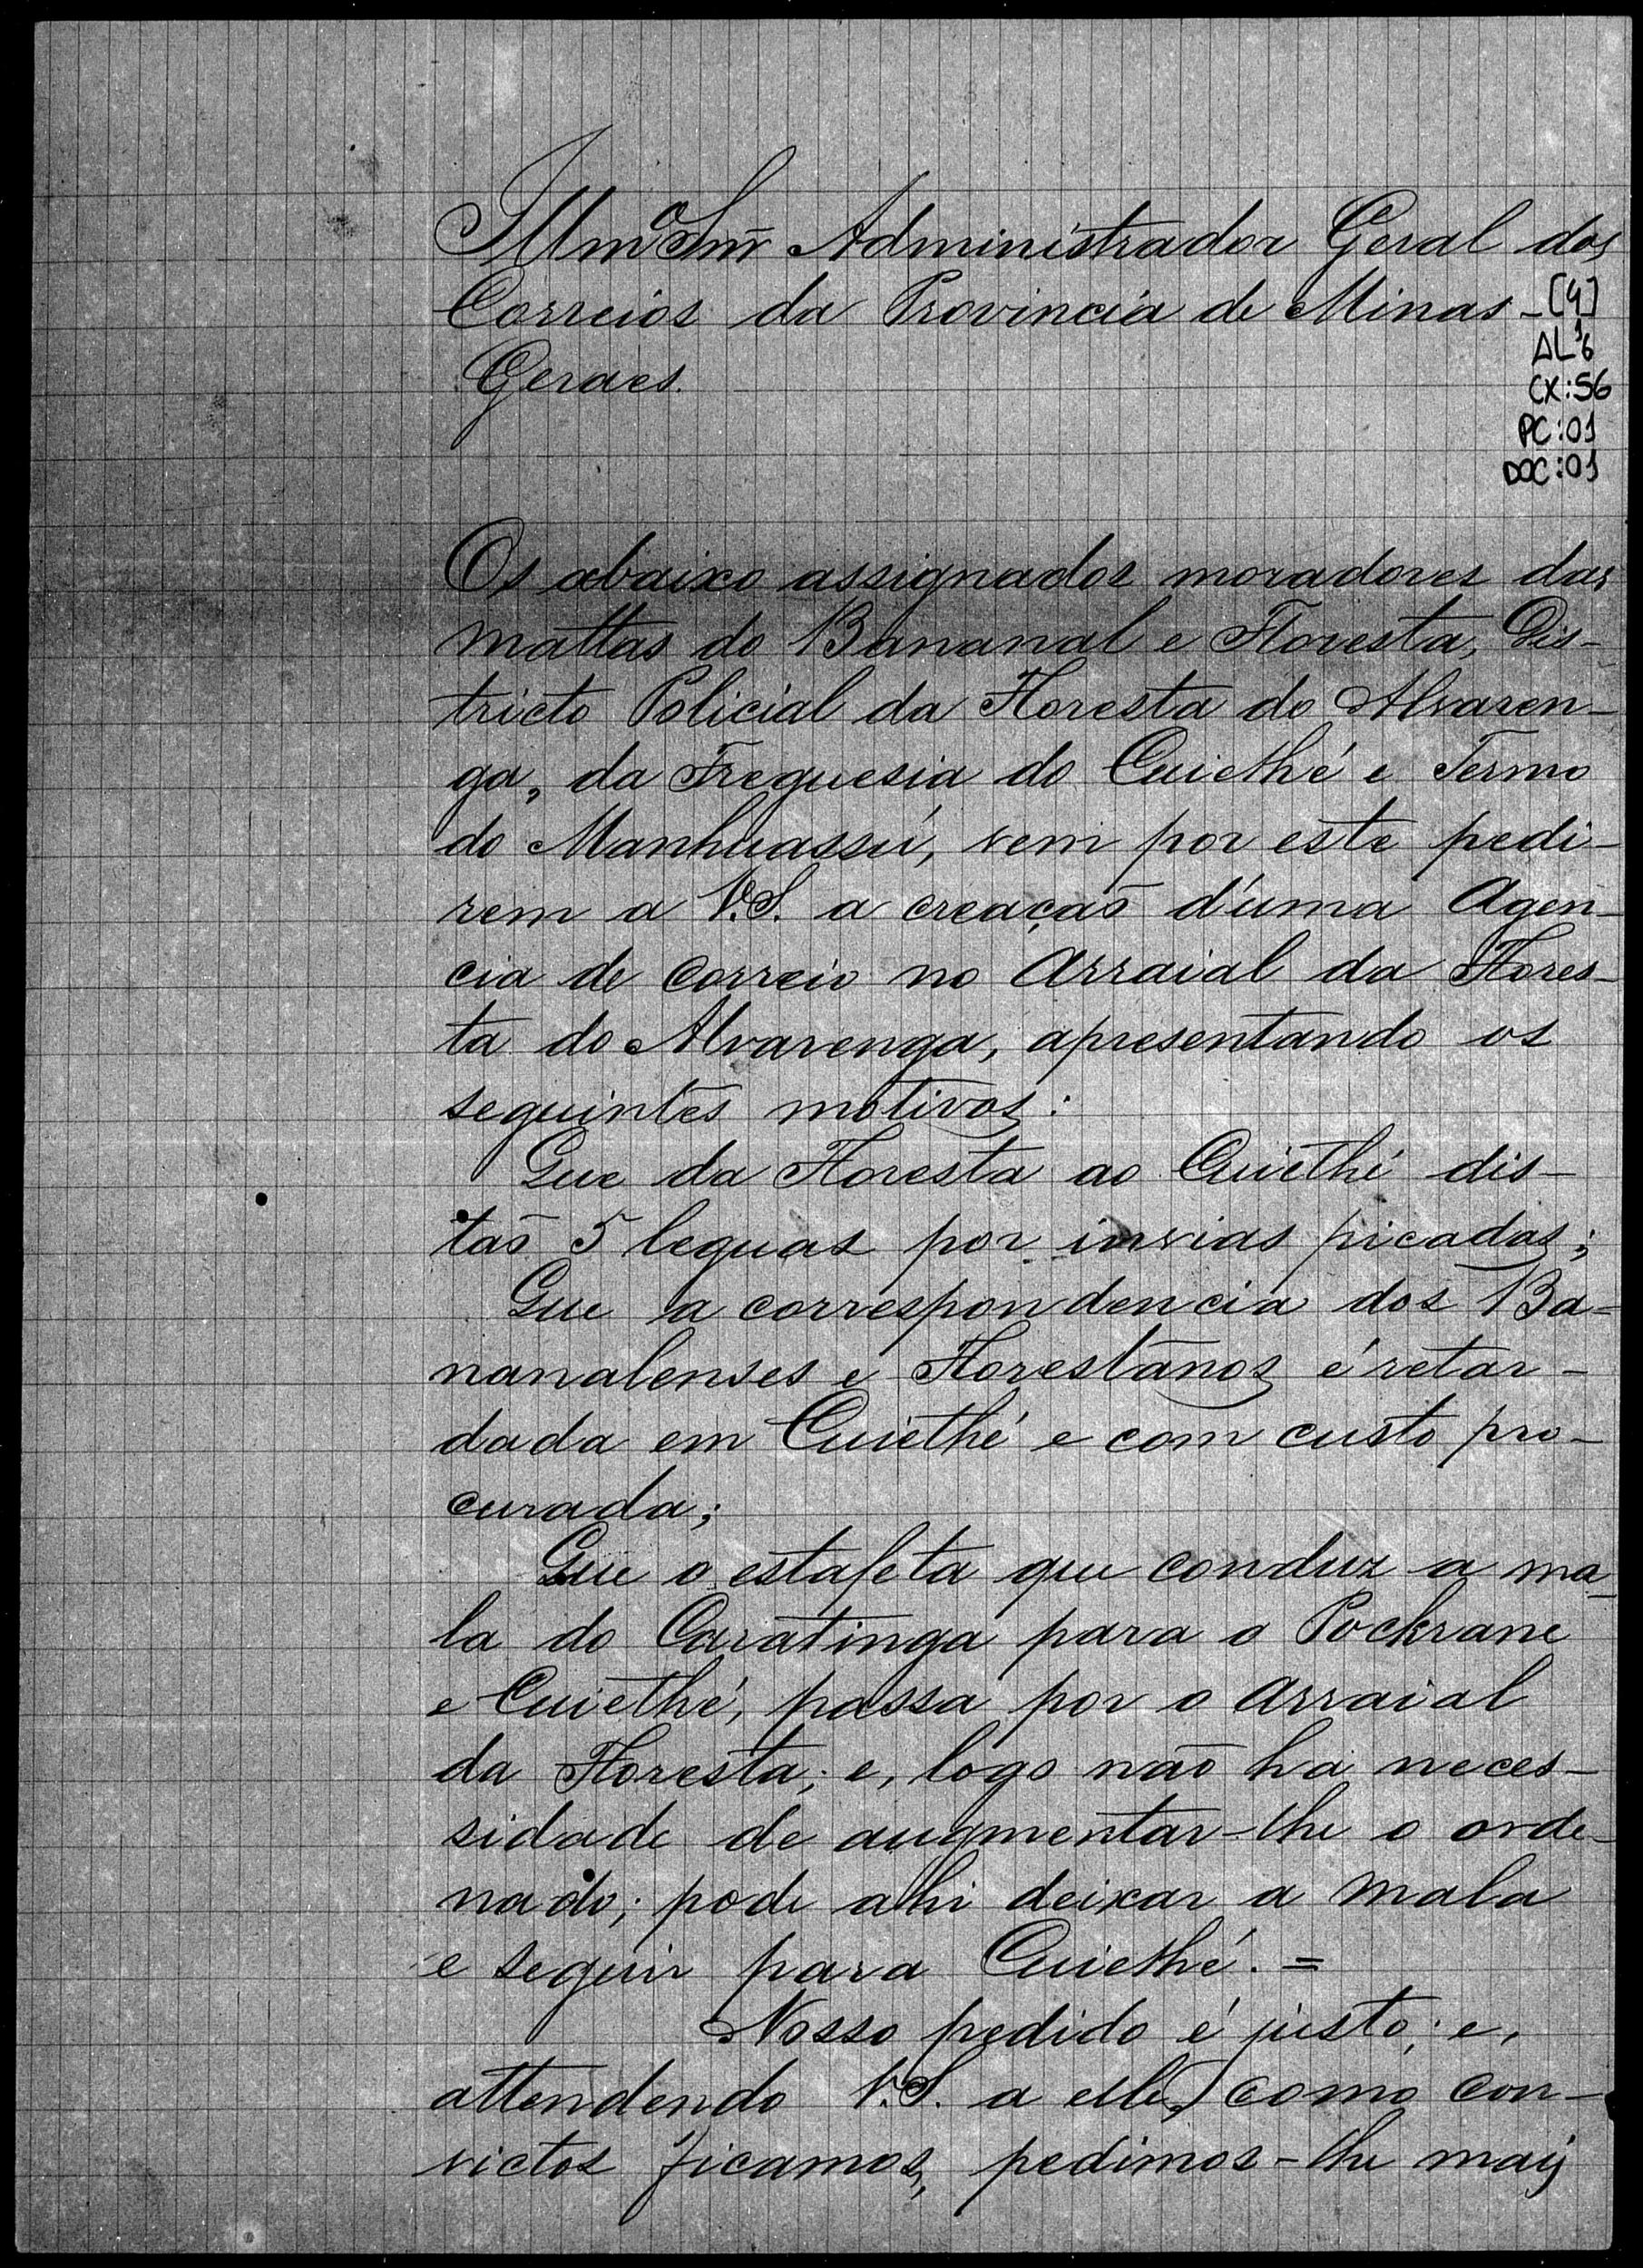 Illmº Snr̃ Administrador Geral dos
Correios da Provincia de Minas-
Geraes.
[4]
AL16
CX:56
PC:01
DOC:01
Os abaixo assignados moradores das
mattas do Bananal e Floresta, Dis-
tricto Policial da Floresta do Alvaren-
ga, da Freguesia do Cuiethé e Termo
do Manhuassú, vem por este pedi-
rem a V.S. a creação d'uma Agen-
cia de correio no Arraial da Flores-
ta do Alvarenga, apresentando os
seguintes motivos:
Que da Floresta ao Cuiethé dis-
tão 5 leguas por invias picadas;
Que a correspondencia dos Ba-
nanalenses e Florestanos é retar-
dada em Cuiethé e com custo pro-
curada;
Que o estafeta que conduz a ma-
la do Caratinga para o Pockrane
e Cuiethé, passa por o Arraial
da Floresta; e, logo não ha neces-
sidade de augmentar-lhe o orde-
nado; pode alhi deixar a mala
e seguir para Cuiethé. =
Nosso pedido é justo; e,
attendendo V.S. a elle, como con-
victos ficamos, pedimos-lhe mais